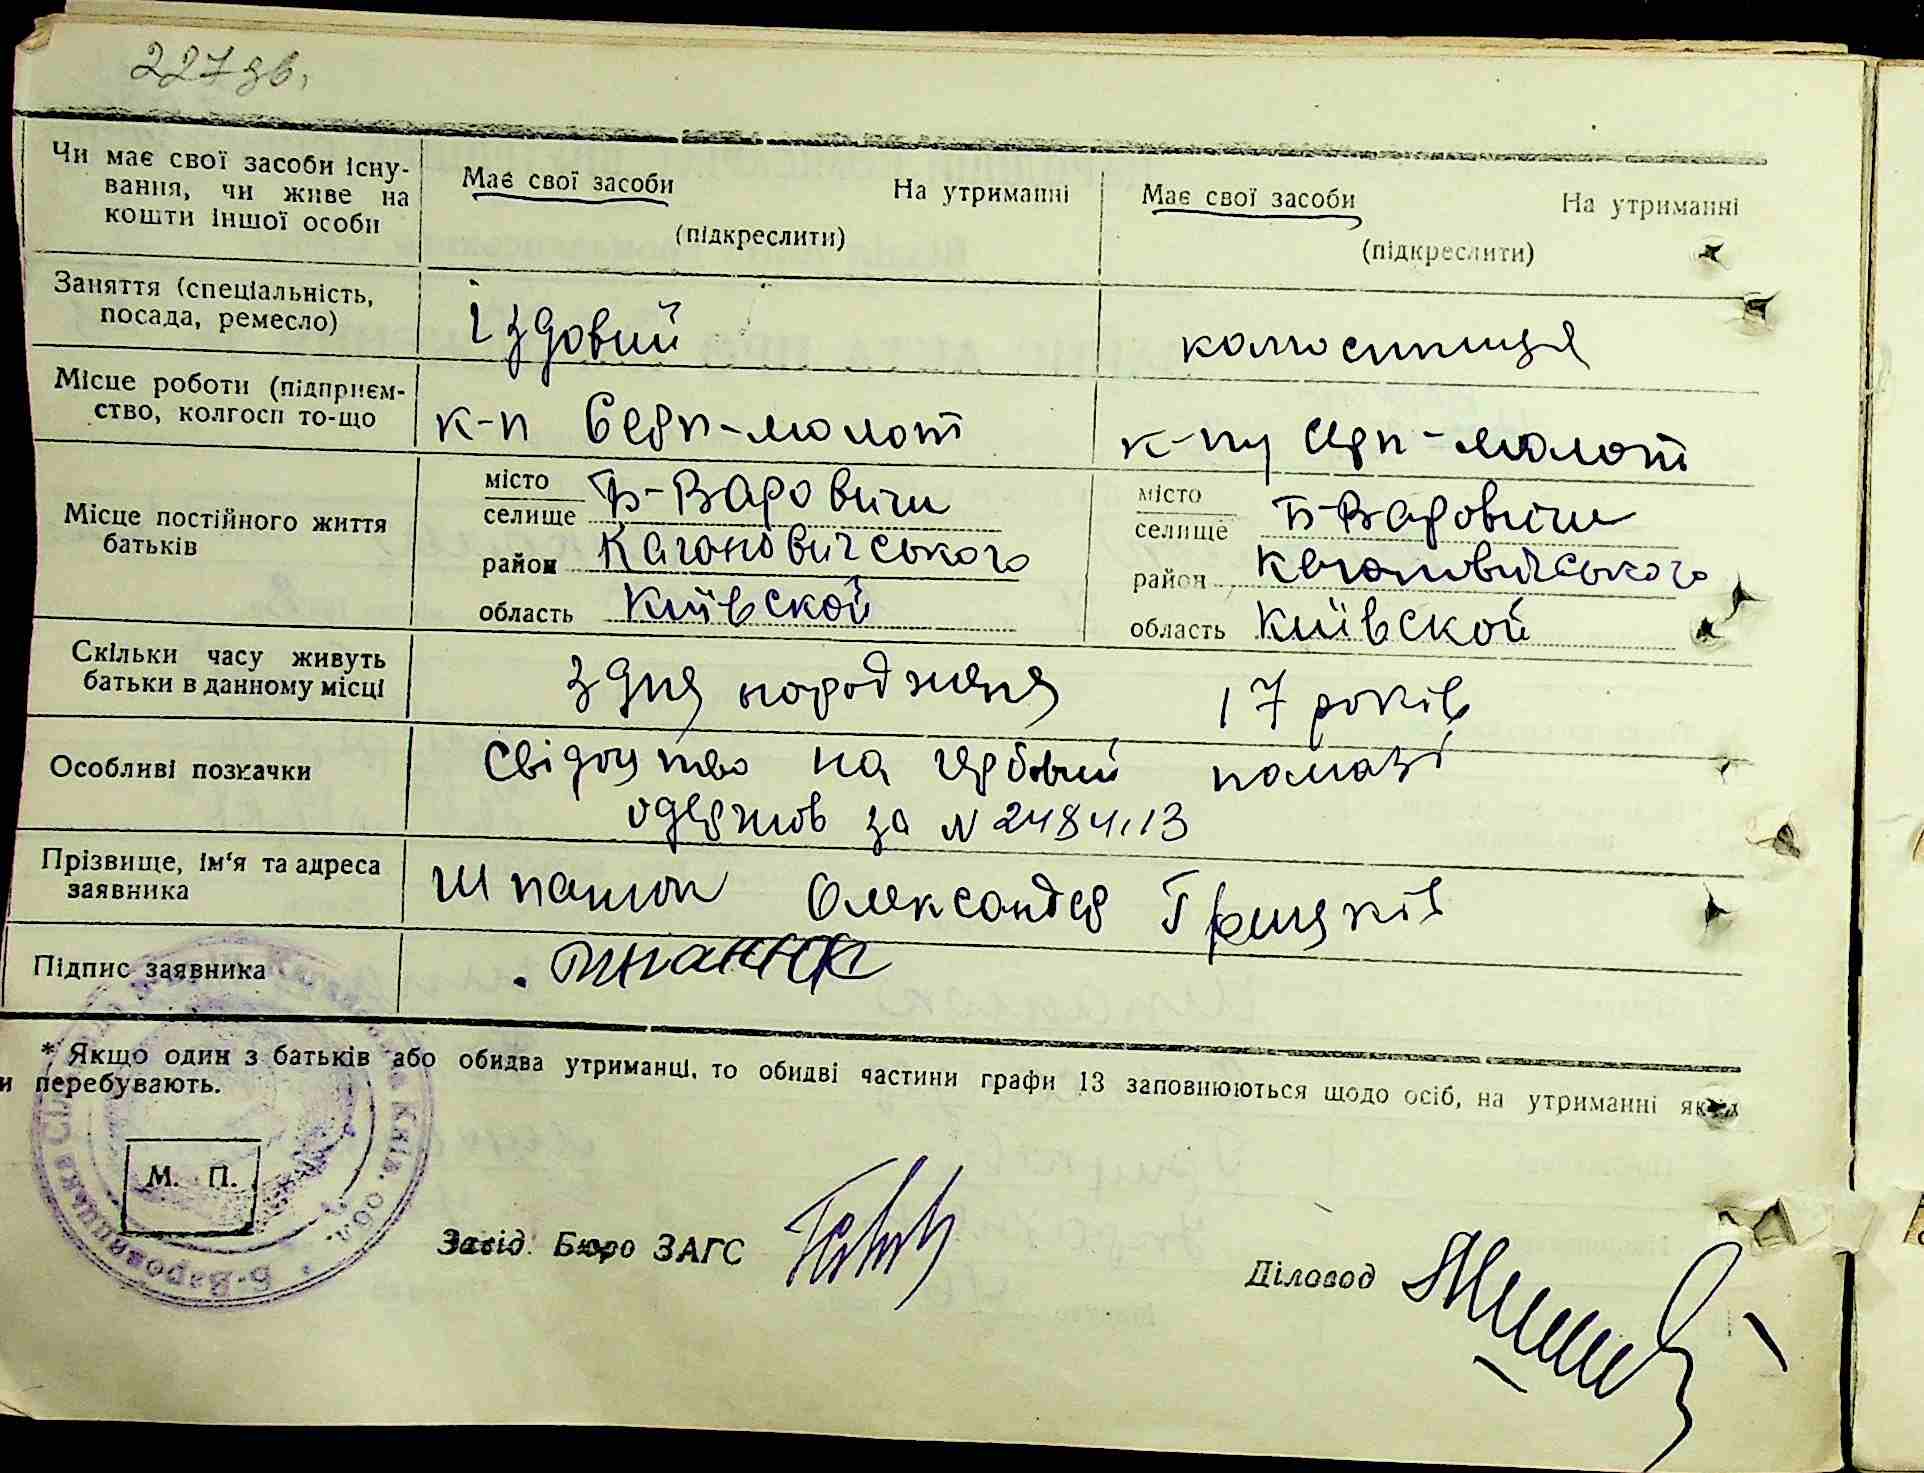 227 зв.
Чи має свої засоби існу-
вання, чи живе на
кошти іншої особи
Має свої засоби На утриманні
(підкреслити)
Має свої засоби На утриманні
(підкреслити)
Заняття (спеціальність,
посада, ремесло)
їздовий
колгоспниця
Місце роботи (підприєм-
ство, колгосп то-що
к-п Серп-молот
к-пу Серп-молот
Місце постійного життя
батьків
місто
селище Б-Варовичи
район Кагановичського
область Київской
місто
селище Б-Варовичи
район Кагановичського
область Київской
Скільки часу живуть
батьки в данному місці
З дня народженя
17 років
Особливі позначки
Свідоцтво на гербовий
одержов за N 2484113
Прізвище, ім'я та адреса
заявника
Шпанюк Олександер Грицків
Підпис заявника
. Шпанюк
* Якщо один з батьків або обидва утриманці, то обидві частини графи 13 заповнюються щодо осіб, на утриманні яких
и перебувають.
М. П.
Б-Варовицька Київ. обл.
Завід. Бюро ЗАГС
Діловод